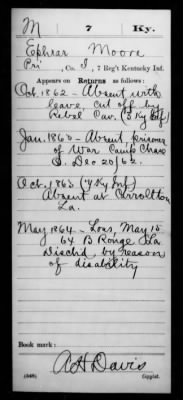 M 7 Ky.
Ephrar Moore
Pri, Co. I, 7 Reg't Kentucky Inf.
Appears on Returns as follows:
Oct. 1862 - Absent with
leave, cut off by
Rebel Cav. (3 Ky Inf)
Jan. 1863 - Absent, prisoner
of War Camp Chase
O. Dec 20/62.
Oct. 1863 (7 Ky Inf)
Absent at Carrollton
La.
May 1864 - Loss, May 15
64 B Rouge La
Disch'd by reason
of disability
Book mark:
A H Davis
(546) Copyist.